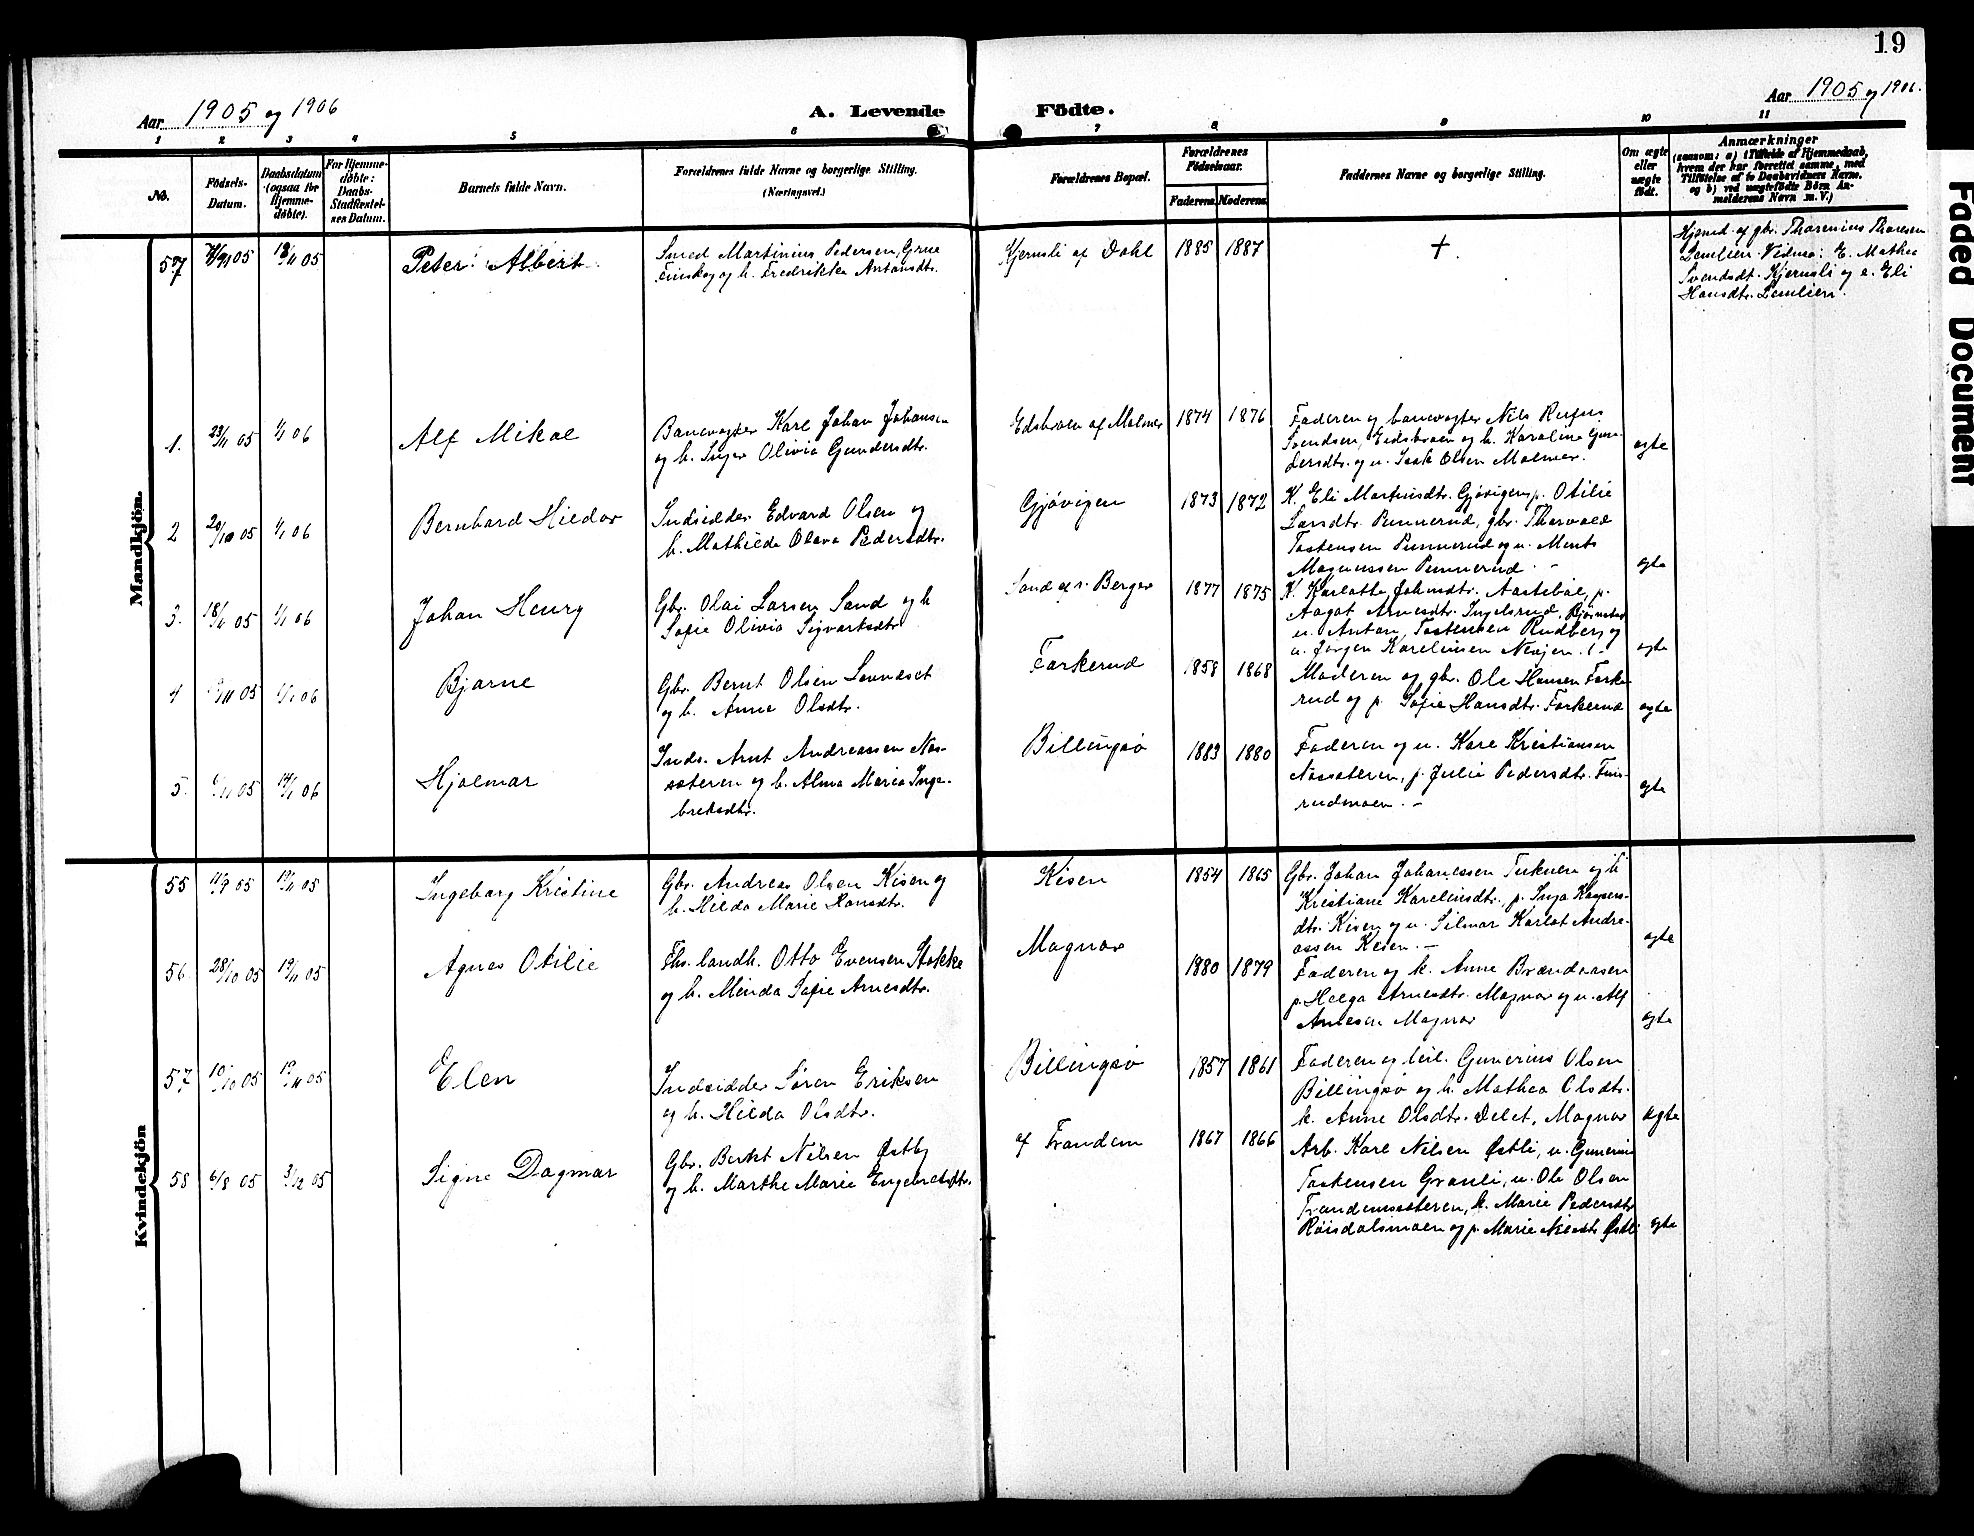 19
Aar 1905 og 1906
A. Levende
Födte.
Aar 1905 og 1906.
1 2 3 4 5 6 7 8 9 10 11
No.
Födsels-
Datum.
Daabsdatum
(ogsaa for
Hjemme-
döbte).
For Hjemme-
döbte:
Daabs-
Stadfæstel-
ses Datum.
Barnets fulde Navn.
Forældrenes fulde Navne og borgerlige Stilling.
(Næringsvei.)
Forældrenes Bopæl.
Forældrenes
Födselsaar.
Faderens. Moderens.
Faddernes Navne og borgerlige Stilling.
Om ægte
eller
uægte
födt.
Anmærkninger
(saasom: a) i Tilfælde af Hjemmedaab,
hvem der har forrettet samme, med
Tilföielse af to Daabsvidners Navne,
og b) ved uægtefödte Börn An-
melderens Navn m. V.)
Mandkjön.
57 05 05
Peter Albert
Smed Martinius Pedersen, Grue
Finskog og h. Fredrikke Antonsdtr.
Kjernsli af Dahl
1885 1887
+
Hjemd. af gbr. Thorenius Thoresen
Lemlien. Vidner: E. Mathea
Svendsdt. Kjernsli og e. Eli
Hansdtr. Lemlien.
1. 23/11 05 1/1 06
Alf Mikal
Banevogter Karl Johan Johansen
og h. Inger Olivia Gundersdtr.
Edsbroen af Malmer
1874 1876
Faderen og banevogter Nils Rufus
Svendsen, Eidsbroen og h. Karoline Gun-
dersdtr. og u. Isak Olsen Malmer.
ægte
2 29/10 05 1/1 06
Bernhard Hildor
Indsidder Edvard Olsen og
h. Mathilde Olava Pedersdtr.
Gjøvigen
1873 1872
K. Eli Martinsdtr. Gjøvigen, p. Otilie
Larsdtr. Pennerud, gbr. Thorvald
Tostensen Pennerud og u. Marts
Magnussen Pennerud.
ægte
3. 18/11 05 1/1 06
Johan Henry
Gbr. Olai Larsen Sand og h.
Sofie Olivia Sigvartsdtr.
Sand Berger
1877 1875
K. Karlotte Johnsdtr. Aastebøl, p.
Aagot Arnesdtr. Ingelsrud, Bjørnstad
u. Anton Tostensen Rudberg og
u. Jørgen Karelinsen Nersjøen.
ægte
4 /11 05 1/1 06
Bjarne
Gbr. Bernt Olsen Lovnæset
og h. Anne Olsdtr.
Forkerud
1858 1868
Moderen og gbr. Ole Hansen Forke-
rud og p. Sofie Hansdtr. Forkerud
ægte
5. /11 05 14/1 06
Hjalmar
Inds. Arnt Andreassen Næs-
sæteren og h. Alma Maria Inge-
bretsdtr.
Billingsø
1883 1880
Faderen og u. Karl Kristiansen
Næssæteren, p. Julie Pedersdtr. Fin-
rudmoen.
ægte
Kvindekjön
55 11/9 05 19/11 05
Ingeborg Kristine
Gbr. Andreas Olsen Kisen og
h. Hilda Marie Hansdtr.
Kisen
1854 1865
Gbr. Johan Johanessen Tuknes og h.
Kristiane Karelinsdtr., p. Inga Kaspers-
dtr. Kisen og u. Hilmar Karlot Andre-
assen Kisen.
ægte
56. 28/10 05 19/11 05
Agnes Otilie
Fhv. landh. Otto Evensen Stokke
og h. Minda Sofie Arnesdtr.
Magnor
1880 1879
Faderen og k. Anne Brændaasen
p. Helga Arnesdtr. Magnor og u. Alf
Arnesen Magnor
ægte
57. 10/10 05 19/11 05
Elen
Indsidder Søren Eriksen
og h. Hilda Olsdtr.
Billingsø
1857 1861
Faderen og leil. Gunerius Olsen
Billingsø og h. Mathea Olsdtr.
k. Anne Olsdtr. Delet, Magnor
ægte
58 6/8 05 3/12 05
Signe Dagmar
Gbr. Berkt Nilsen Østby
og h. Marthe Marie Engebretsdtr.
af Trandem
1867 1866
Arb. Karl Nilsen Østli, u. Gunerius
Tostensen Granli, u. Ole Olsen
Trandemsæteren, k. Marie Pedersdtr.
Røisdalsmoen og p. Marie Nilsdtr. Østli
ægte
Faded Document